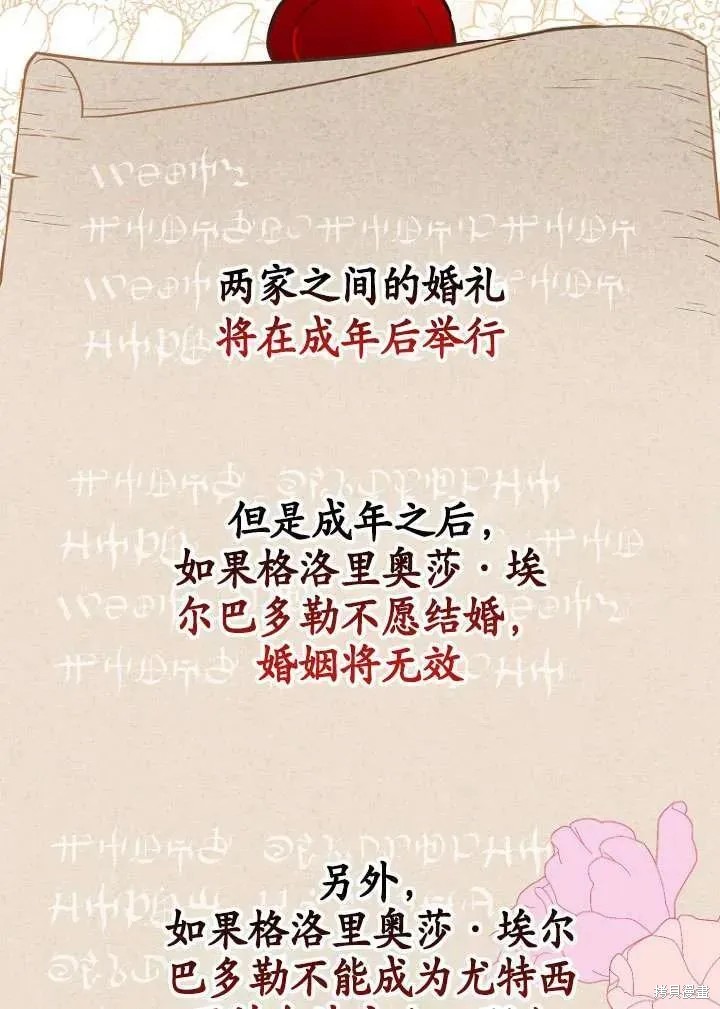 两家之间的婚礼
将在成年后举行
但是成年之后，
如果格洛里奥莎·埃
尔巴多勒不愿结婚，
婚姻将无效
另外，
如果格洛里奥莎·埃尔
巴多勒不能成为尤特西
拷貝漫畫